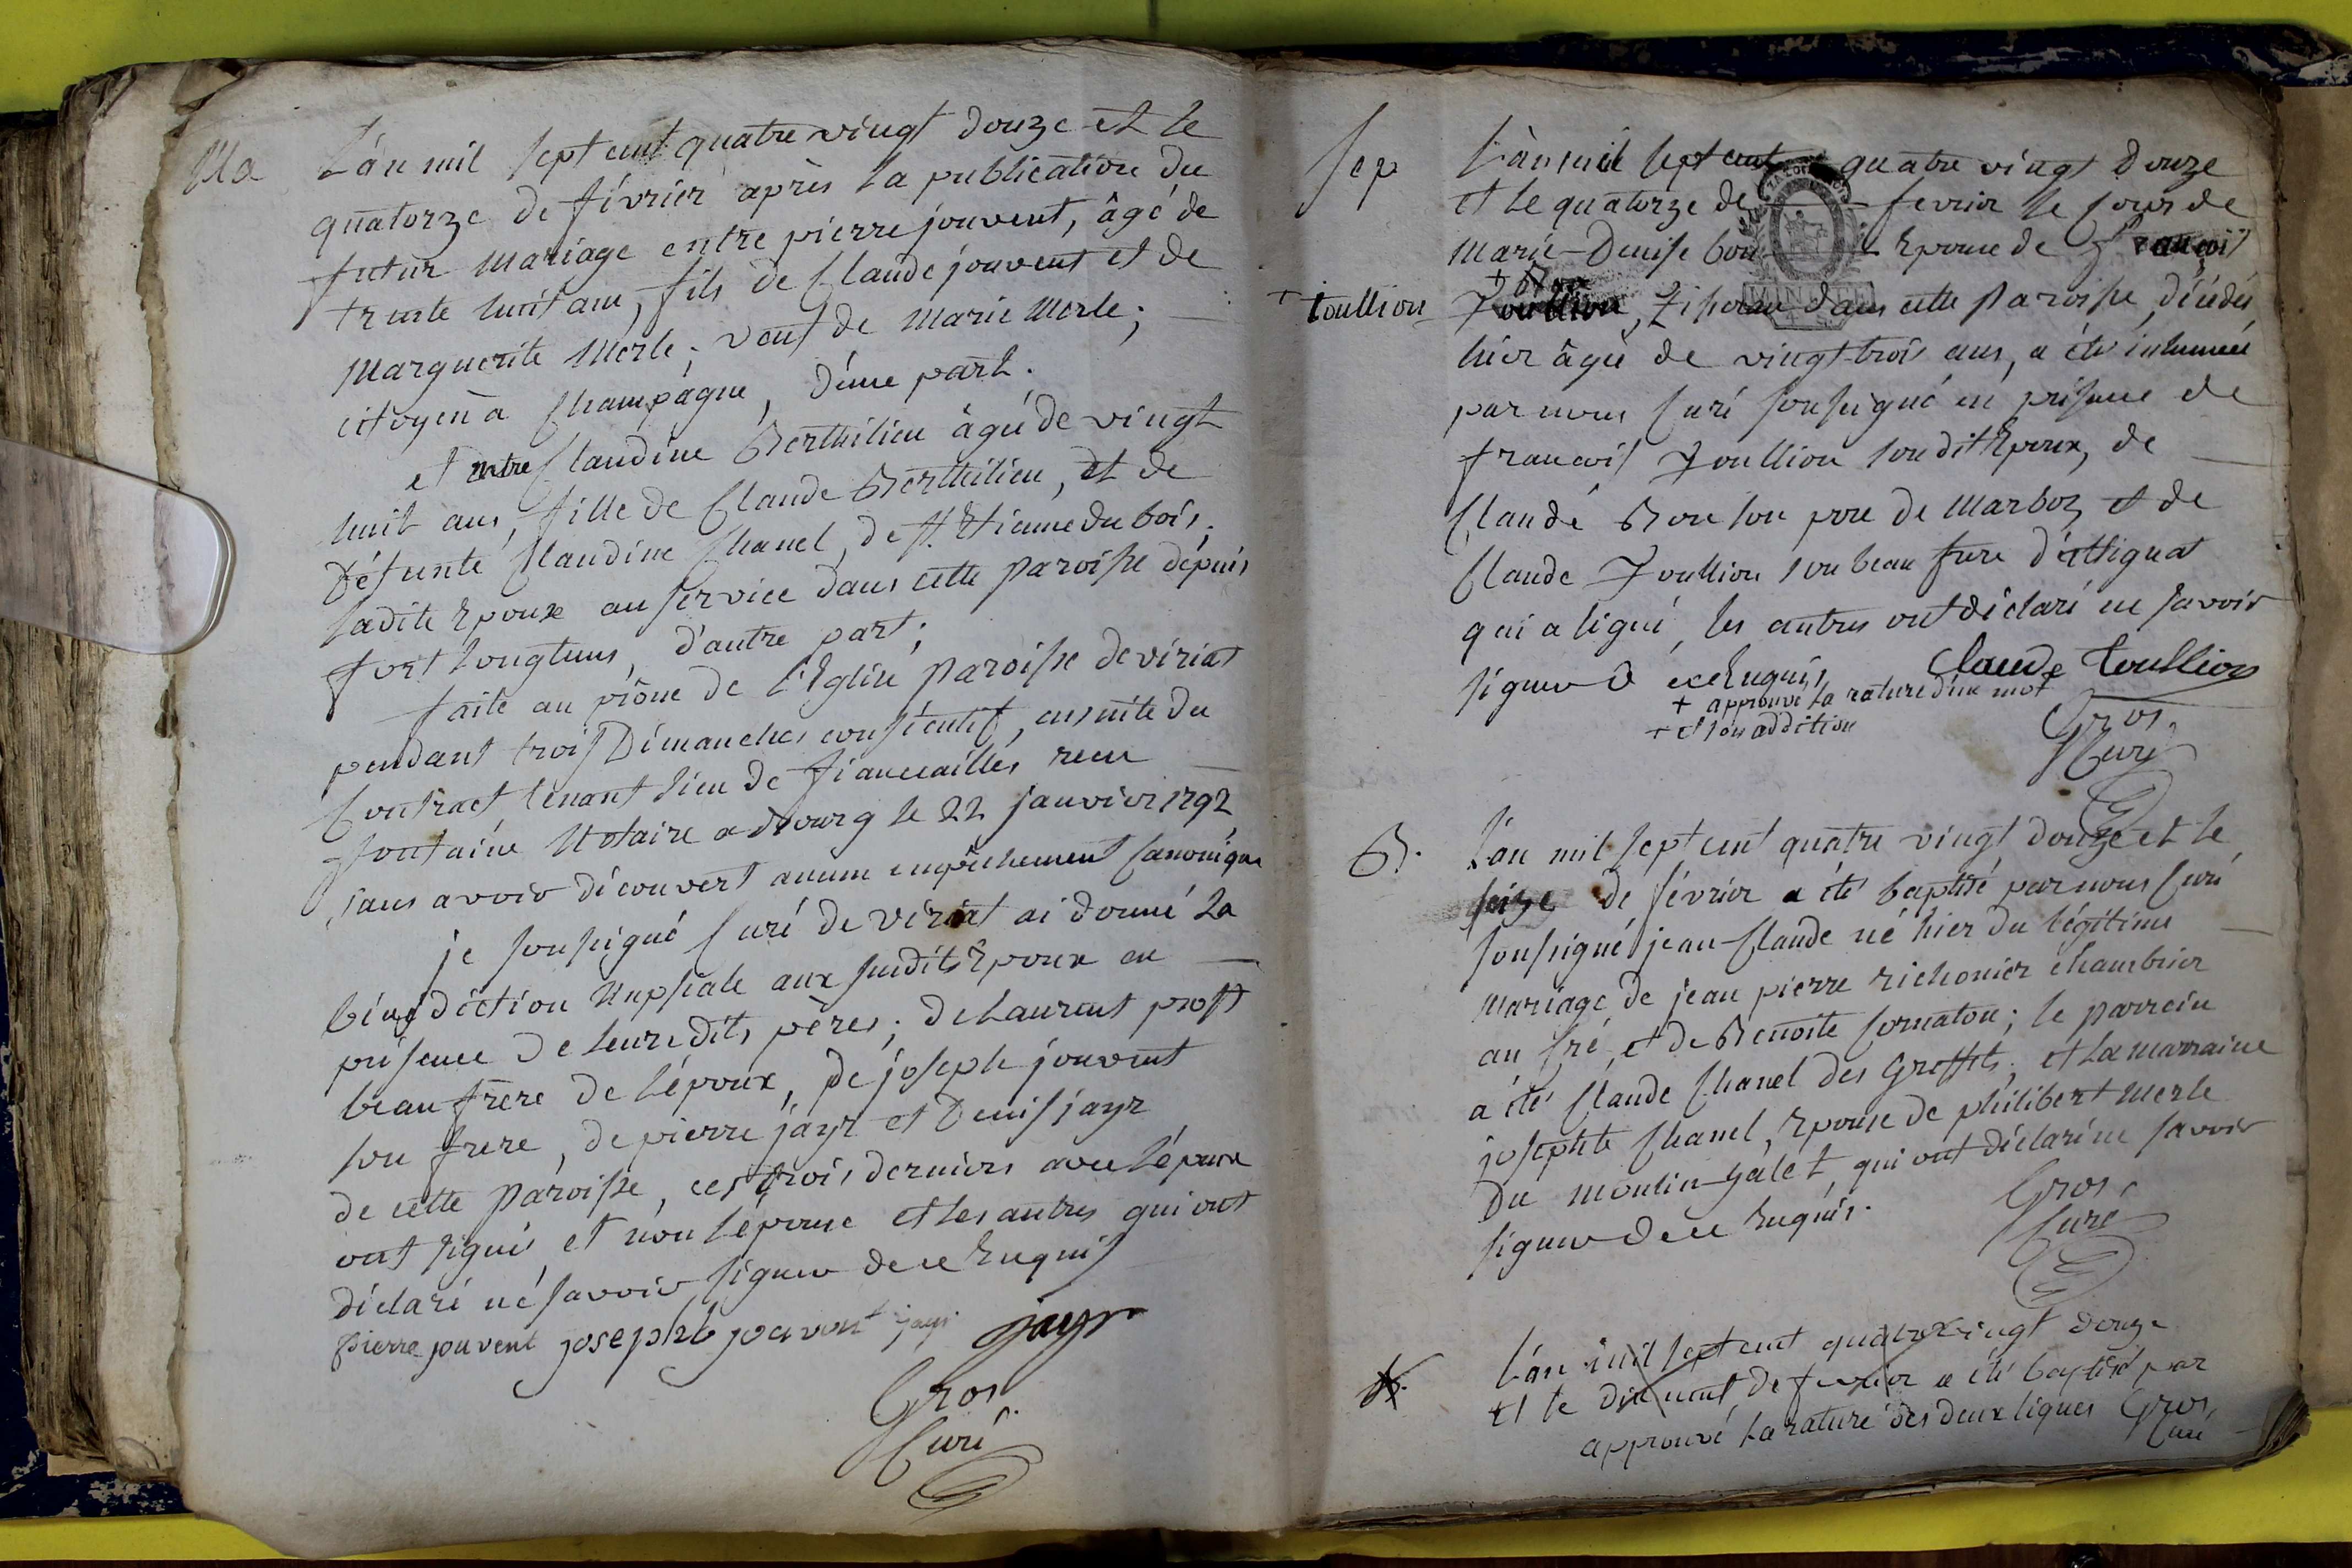 Ma L'an mil sept cent quatre vingt douze et le
quatorze de février après la publication du
futur mariage entre pierre jouvent, âgé de
trente huit ans, fils de Claude jouvent et de
Marguerite Merle; veuf de Marie Merle;
citoyen à Champagne, d'une part.
et entre Claudine Berthilieu âgée de vingt
huit ans, fille de Claude Berthilieu, et de
défunte Claudine Chanel, de St. Etienne du bois;
ladite Epouse au service dans cette paroisse dépuis
fort longtems, d'autre part;
faite au prône de l'Eglise paroisse de viriat
pendant trois Dimanches consécutif, ensuite du
Contract tenant lieu de fiancailles recu
fontaine Notaire a Bourg le 22 janvier 1792
sans avoir découvert aucun empêchement Canonique
je soussigné Curé de viriat ai donné la
bénédiction Nuptiale aux susdits Epoux en
présence de leursdits pères; de Laurent prost
beau frère de l'époux, de joseph jouvent
son frere, de pierre jayr et Denis jayr
de cette paroisse, ces trois derniers avec l'époux
ont signé, et non l'épouse et les autres qui ont
déclaré né savoir signer de ce Enquis
pierre jouvent joseph jouvent jayr jayr
Gros.
Curé
Sep L'an mil sept cent quatre vingt douze
et le quatorze de fevrier le corps de
Marie-Denise bon Epouse de francois
+ toullion Toullion, Tisseran dans cette paroisse, décédée
hier âgée de vingt-trois ans, a été inhumée
par nous Curé soussigné en présence de
francois Toullion son dit Epoux, de
Claude Bon son pere de Marboz et de
Claude Toullion son beau frere d'attignat
qui a signé, les autres ont déclaré ne savoir
signer de ce Enquis, Claude toullion
+ approuvé la rature d'un mot
+ et son addition
Gros,
Curé
B. L'an mil sept cent quatre vingt douze et le
seize de février a été baptisé par nous Curé
soussigné jean-Claude né hier du légitime
mariage de jean pierre richonier chambrier
au fré, et de Benoite Cornaton; le parrein
a été Claude Chanel des Greffets; et la marraine
josephte Chanel, Epouse de philibert Merle
du moulin-galet, qui ont déclaré ne savoir
signer de ce Enquis.
Gros,
Curé
B. L'an mil sept cent quatre vingt douze
et le dix neuf de fevrier a été baptisé par
approuvé la rature des deux lignes Gros,
Curé